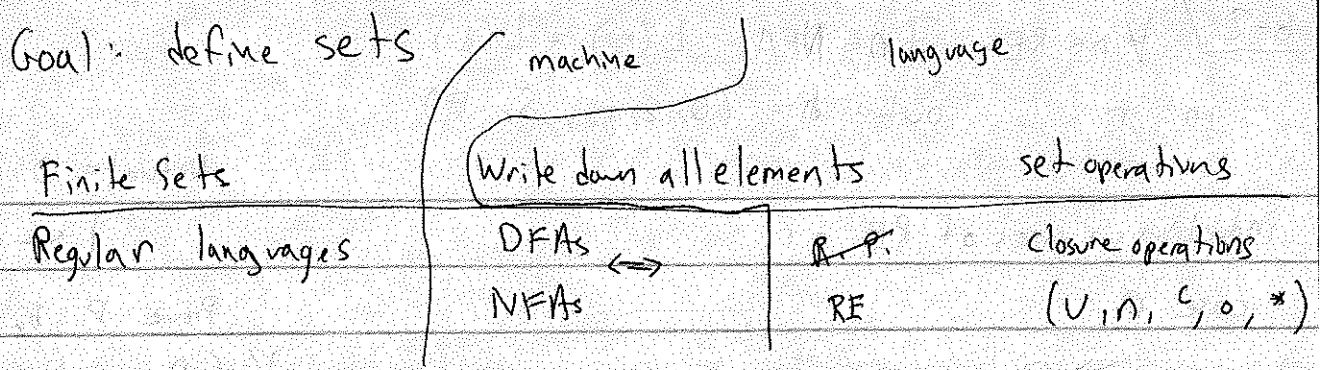 Goal: define sets machine language
Finite Sets Write down all elements set operations
Regular languages DFAs ⟺ R.P. closure operations
NFAs RE (∪, ∩, ᶜ, ∘, *)